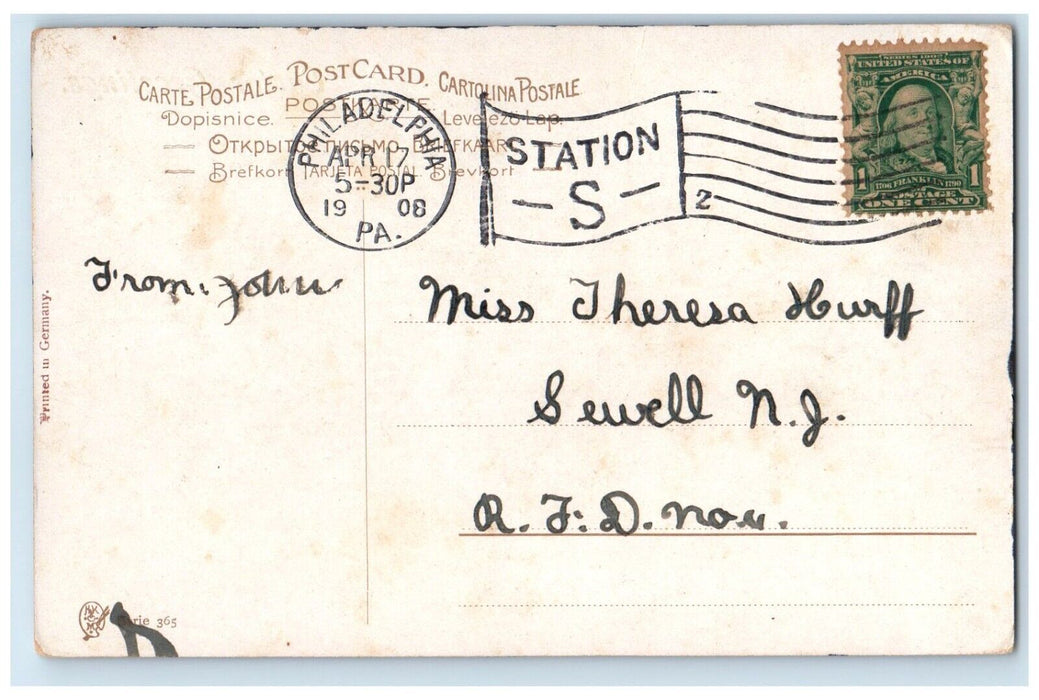 CARTE POSTALE. POST CARD. CARTOLINA POSTALE
Dopisnice. POSTKARTE Levelező-Lap.
Открытое письмо BRIEFKAART
Brefkort TARJETA POSTAL Brevkort
PHILADELPHIA
APR 17
5-30P
19 08
PA.
STATION
- S -
2
SERIES 1902
UNITED STATES OF
AMERICA
1 1706 FRANKLIN 1790 1
POSTAGE
ONE CENT
From: John
Miss Theresa Hurff
Sewell N.J.
R. F. D. No
Printed in Germany.
Serie 365